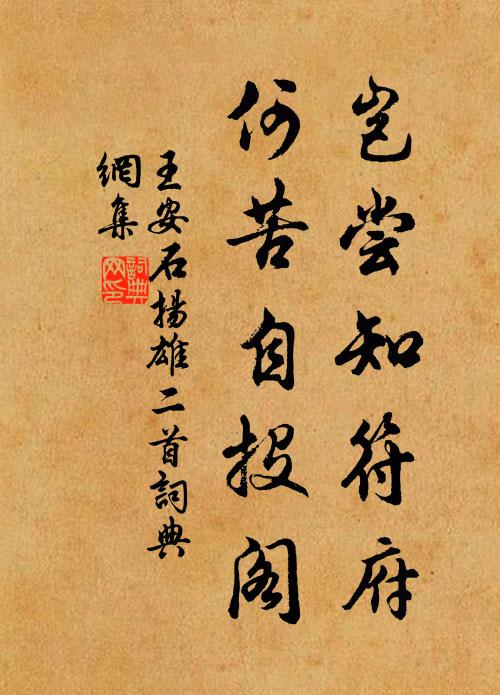 豈嘗知符府
何苦自投閣
王安石揚雄二首詞典
網集
詞典
网印